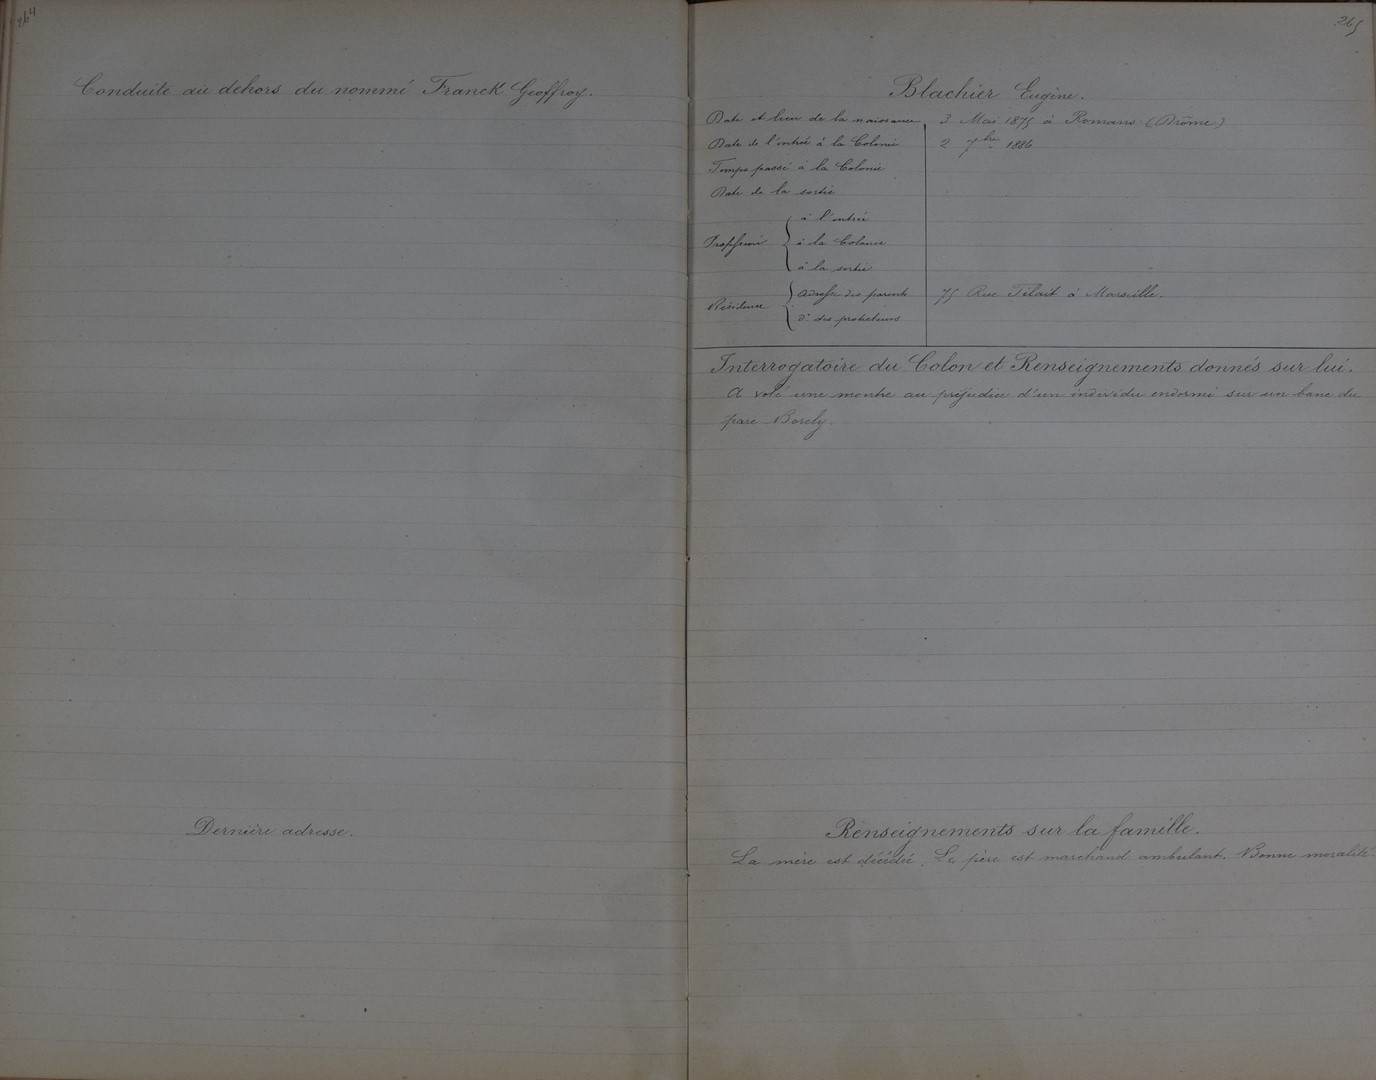 264
Conduite au dehors du nommé Franck Geoffroy.
Dernière adresse.
265
Blachier Eugène.
Date et lieu de la naissance 3 Mai 1875 à Romans (Drôme)
Date de l'entrée à la Colonie 2 7bre 1886
Temps passé à la Colonie
Date de la sortie
à l'entrée
Profession à la Colonie
à la sortie
Adresse des parents 75 Rue Tilsit à Marseille.
Résidence
do des protecteurs
Interrogatoire du Colon et Renseignements donnés sur lui.
A volé une montre au préjudice d'un individu endormi sur un banc du
parc Borely.
Renseignements sur la famille.
La mère est décédée. Le père est marchand ambulant. Bonne moralité.